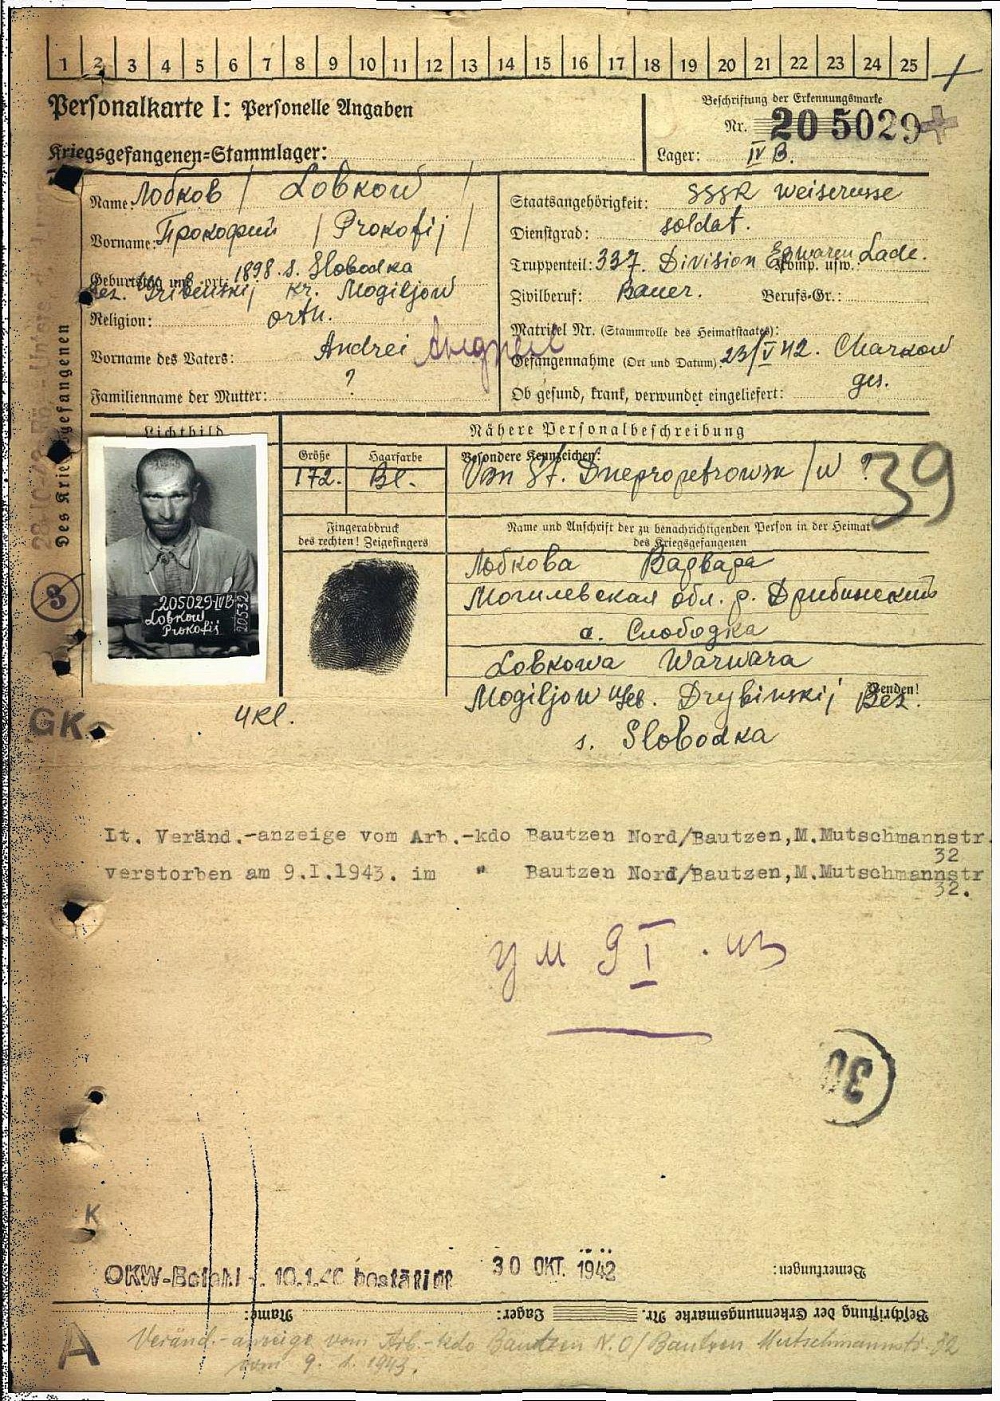 1 2 3 4 5 6 7 8 9 10 11 12 13 14 15 16 17 18 19 20 21 22 23 24 25
Personalkarte I: Personelle Angaben
Kriegsgefangenen-Stammlager:
Beschriftung der Erkennungsmarke
Nr. 205029
Lager: IV B.
Des Kriegsgefangenen
Name: Лобков / Lobkow /
Vorname: Прокофий / Prokofij /
Geburtstag und -ort: 1898. s. Slobodka
Bez. Kr. Mogiljow
Religion: orth.
Vorname des Vaters: Andrei Андрей
Familienname der Mutter: ?
Staatsangehörigkeit: SSSR Weiserusse
Dienstgrad: soldat.
Truppenteil: 337. Division Komp. usw.: Lade.
Zivilberuf: Bauer. Berufs-Gr.:
Matrikel Nr. (Stammrolle des Heimatstaates):
Gefangennahme (Ort und Datum): 23/V 42. Charkow
Ob gesund, krank, verwundet eingeliefert: ges.
Lichtbild
Nähere Personalbeschreibung
Größe Haarfarbe Besondere Kennzeichen:
172. Bl. Von St. Dnepropetrowsk / w ?
39
Fingerabdruck
des rechten! Zeigefingers
Name und Anschrift der zu benachrichtigenden Person in der Heimat
des Kriegsgefangenen
Лобкова Варвара
Могилевская обл. р. Дрибинский
с. Слободка
Lobkowa Warwara
Mogiljow Geb. Drybinskij Bez.
Wenden!
s. Slobodka
205029-IVB
Lobkow
Prokofij
20532
3
4Kl.
GK
Lt. Veränd.-anzeige vom Arb.-kdo Bautzen Nord/Bautzen,M.Mutschmannstr.
32
verstorben am 9.I.1943. im " Bautzen Nord/Bautzen,M.Mutschmannstr
32.
ум 9 I . 43
30
K
OKW-Befehl v. 10.1.40 bestätigt
30 OKT. 1942
Bemerkungen:
Beschriftung der Erkennungsmarke Nr. Lager: Name:
A
Veränd.-anzeige vom Arb.-kdo Bautzen N.O/Bautzen Mutschmannstr. 32
vom 9. 1. 1943.